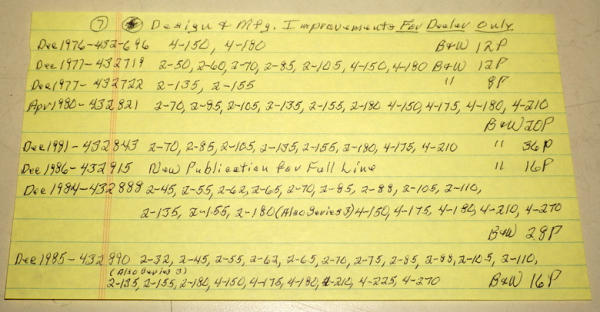 7 Design & Mfg. Improvements For Dealer Only.
Dec 1976-432-696 4-150, 4-180 B&W 12P
Dec 1977-432719 2-50, 2-60, 2-70, 2-85, 2-105, 4-150, 4-180 B&W 12P
Dec 1977-432722 2-135, 2-155 " 8P
Apr 1980-432821 2-70, 2-85, 2-105, 2-135, 2-155, 2-180 4-150, 4-175, 4-180, 4-210
B&W 20P
Dec 1981-432843 2-70, 2-85, 2-105, 2-135, 2-155, 2-180, 4-175, 4-210 " 36P
Dec 1986-432915 New Publication for Full Line " 16P
Dec 1984-432888 2-45, 2-55, 2-62, 2-65, 2-70, 2-85, 2-88, 2-105, 2-110,
2-135, 2-155, 2-180 (Also Series 3) 4-150, 4-175, 4-180, 4-210, 4-270
B&W 28P
Dec 1985-432890 2-32, 2-45, 2-55, 2-62, 2-65, 2-70, 2-75, 2-85, 2-88, 2-105, 2-110,
(Also Series 3)
2-135, 2-155, 2-180, 4-150, 4-175, 4-180, 4-210, 4-225, 4-270 B&W 16P